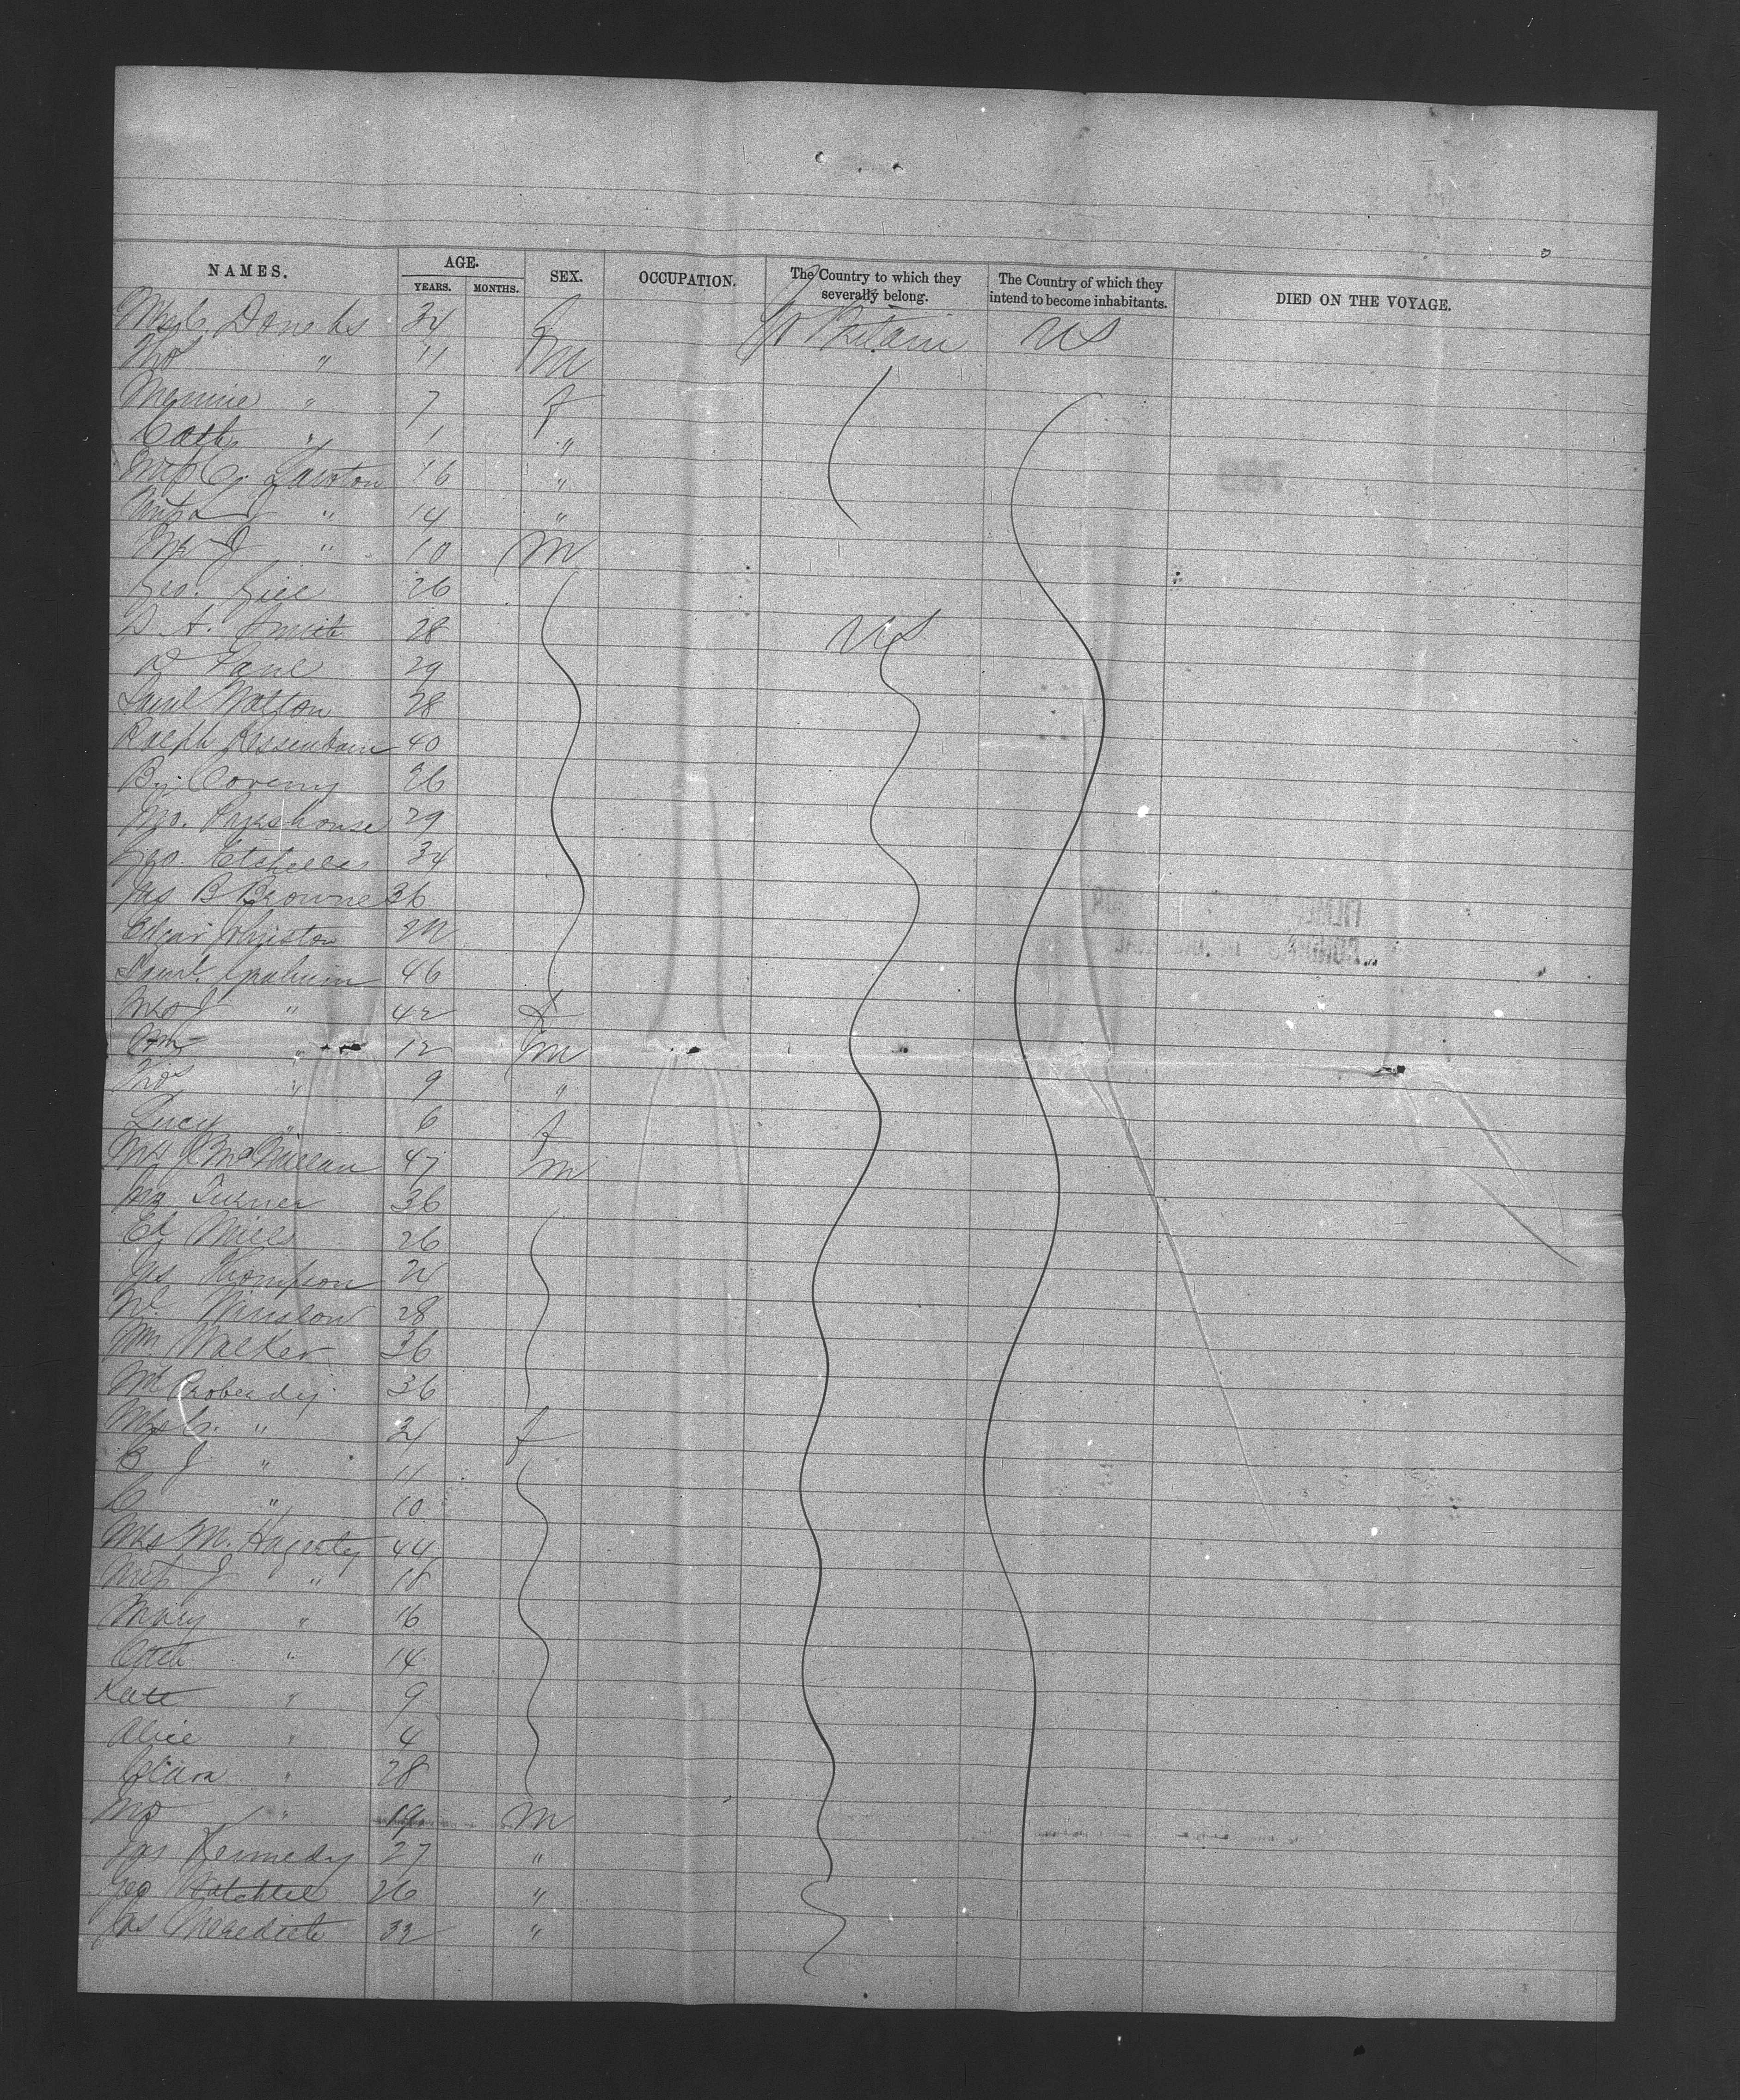 NAMES. AGE. SEX. OCCUPATION. The Country to which they severally belong. The Country of which they intend to become inhabitants. DIED ON THE VOYAGE.
YEARS. MONTHS.
Mrs C. 34 f Gt Britain US
Thos " 11 m
Minnie " 7 f
Cath " 1 "
Miss C. Lawton 16 "
Miss J " 14 "
Mr J " 10 m
Geo. Gill 26
D A. Smith 28 US
D Lane 29
Saml Watson 28
Ralph 40
26
Jno. 29
Geo. Etchells 34
Jas B Browne 36
Edgar Johnston
Saml. Graham 46
Mrs J " 42 f
Wm " 12 m
Thos " 9 "
Lucy " 6 f
Mrs J McMillan 47 m
Mr Turner 36
Ed Mills 26
Jas Thompson
Winslow 28
Wm Walker 36
Mr 36
Mrs C. " f
E J " 11
C " 10
Mrs M. Hagerty 44
Miss J " 18
Mary " 16
" 14
Kate " 9
Alice " 4
Clara " 28
Jno " 19 m
Jas Kennedy 27 "
Geo 26 "
Jas Meredith 32 "